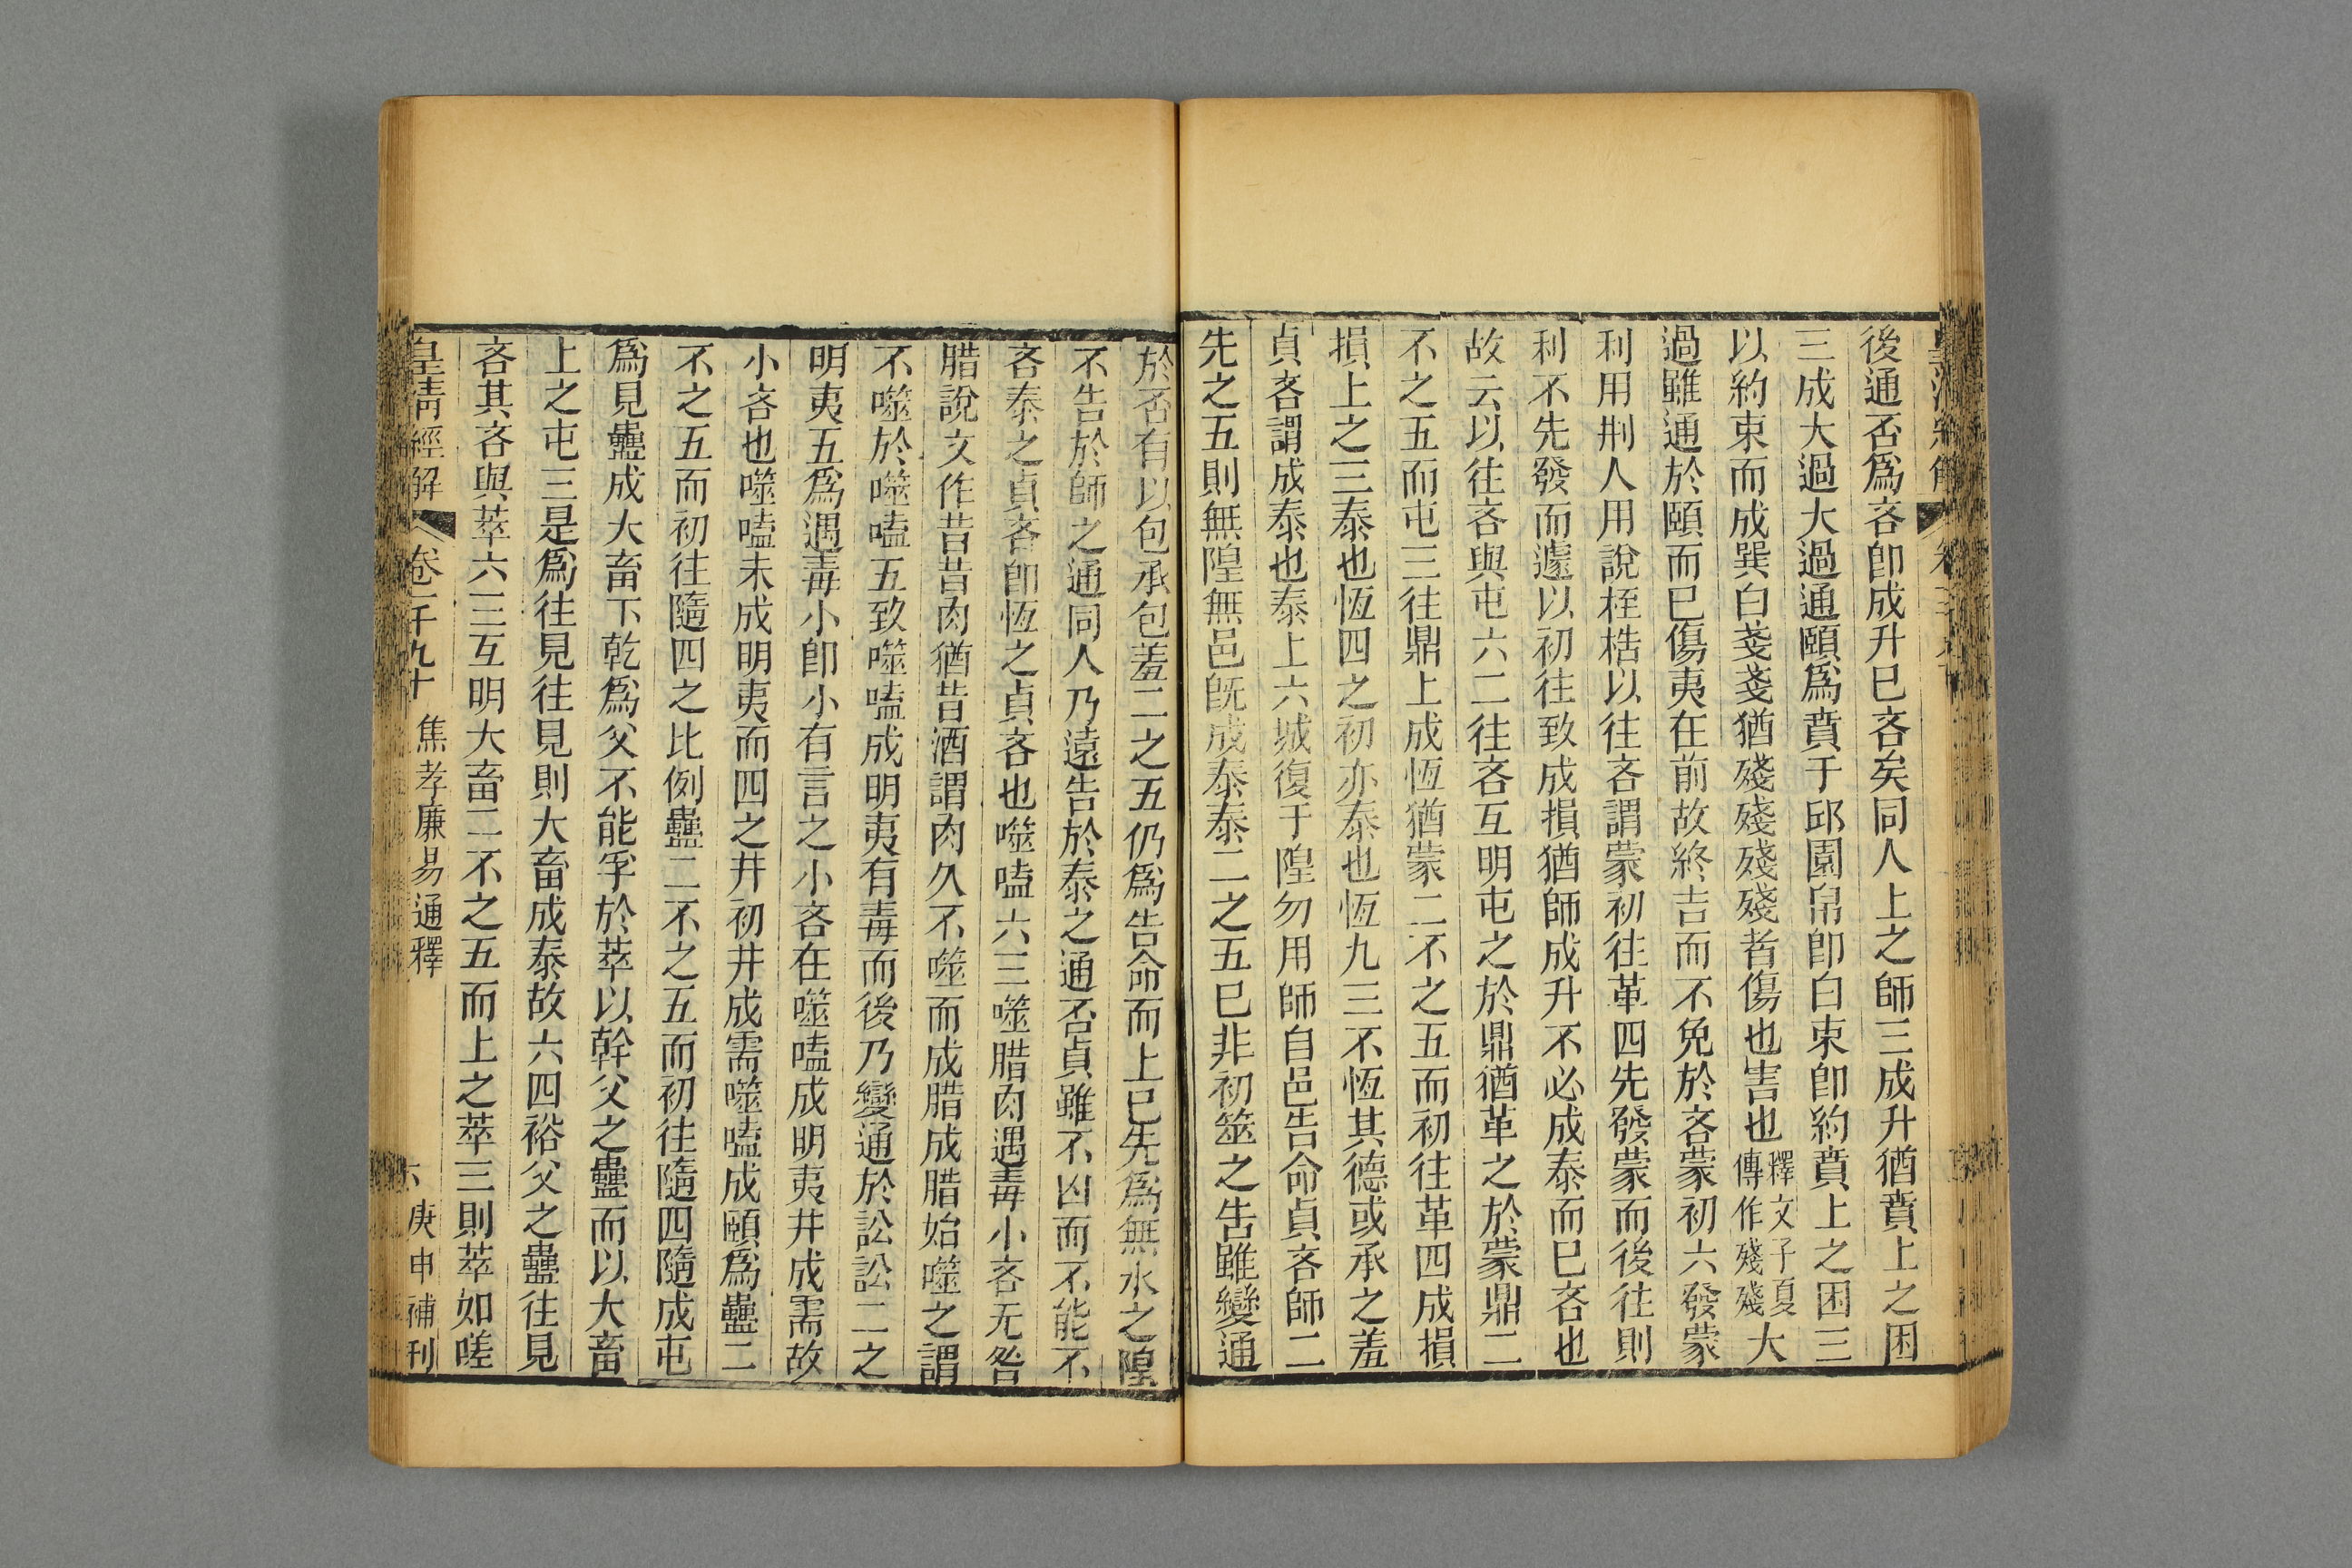 後通否爲吝卽成升巳吝矣同人上之師三成升猶賁上之困
三成大過大過通頤爲賁于邱園帛卽白束卽約賁上之困三
以約束而成巽白戔戔猶殘殘殘殘者傷也害也釋文子夏傳作殘殘大
過雖通於頤而巳傷夷在前故終吉而不免於吝蒙初六發蒙
利用刑人用說桎梏以往吝謂蒙初往革四先發蒙而後往則
利不先發而遽以初往致成損猶師成升不必成泰而巳吝也
故云以往吝與屯六二往吝互明屯之於鼎猶革之於蒙鼎二
不之五而屯三往鼎上成恆猶蒙二不之五而初往革四成損
損上之三泰也恆四之初亦泰也恆九三不恆其德或承之羞
貞吝謂成泰也泰上六城復于隍勿用師自邑告命貞吝師二
先之五則無隍無邑旣成泰泰二之五巳非初筮之告雖變通
於否有以包承包羞二之五仍爲告命而上巳先爲無水之隍
不告於師之通同人乃遠告於泰之通否貞雖不凶而不能不
吝泰之貞吝卽恆之貞吝也噬嗑六三噬腊肉遇毒小吝无咎
腊說文作昔昔肉猶昔酒謂肉久不噬而成腊成腊始噬之謂
不噬於噬嗑五致噬嗑成明夷有毒而後乃變通於訟訟二之
明夷五爲遇毒小卽小有言之小吝在噬嗑成明夷井成需故
小吝也噬嗑未成明夷而四之井初井成需噬嗑成頤爲蠱二
不之五而初往隨四之比例蠱二不之五而初往隨四隨成屯
爲見蠱成大畜下乾爲父不能孚於萃以幹父之蠱而以大畜
上之屯三是爲往見往見則大畜成泰故六四裕父之蠱往見
吝其吝與萃六三互明大畜二不之五而上之萃三則萃如嗟
皇清經解 卷千九十 焦孝廉易通釋 六 庚申補刊